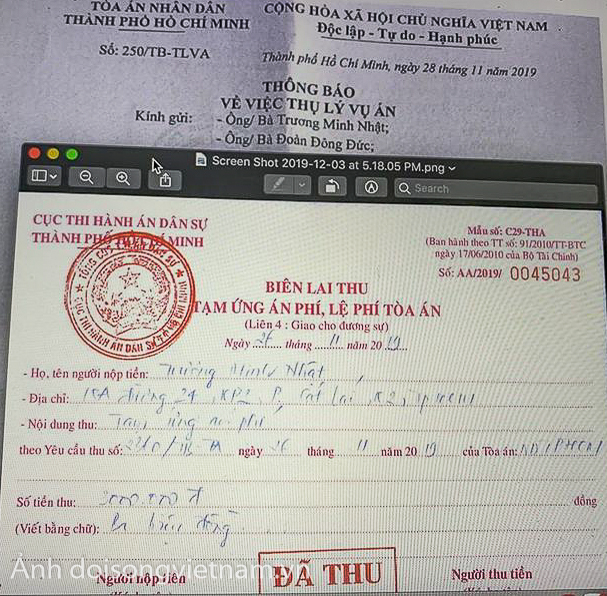 TÒA ÁN NHÂN DÂN
THÀNH PHỐ HỒ CHÍ MINH
CỘNG HÒA XÃ HỘI CHỦ NGHĨA VIỆT NAM
Độc lập - Tự do - Hạnh phúc
Số: 250/TB-TLVA
Thành phố Hồ Chí Minh, ngày 28 tháng 11 năm 2019
THÔNG BÁO
VỀ VIỆC THỤ LÝ VỤ ÁN
Kính gửi: - Ông/ Bà Trương Minh Nhật;
- Ông/ Bà Đoàn Đông Đức;
Screen Shot 2019-12-03 at 5.18.05 PM.png
Search
CỤC THI HÀNH ÁN DÂN SỰ
THÀNH PHỐ HỒ CHÍ MINH
Mẫu số: C29-THA
(Ban hành theo TT số: 91/2010/TT-BTC
ngày 17/06/2010 của Bộ Tài Chính)
Số: AA/2019/ 0045043
BIÊN LAI THU
TẠM ỨNG ÁN PHÍ, LỆ PHÍ TÒA ÁN
(Liên 4 : Giao cho đương sự)
Ngày 26 tháng 11 năm 2019
- Họ, tên người nộp tiền: Trương Minh Nhật
- Địa chỉ: đường 24, KP2, P. Cát Lái, Q2, TPHCM
- Nội dung thu: Tạm ứng án phí
theo Yêu cầu thu số: ngày 26 tháng 11 năm 2019 của Tòa án: ND TPHCM
Số tiền thu: 3000.000 đ đồng
(Viết bằng chữ): Ba triệu đồng
ĐÃ THU
Người nộp tiền
Người thu tiền
Ảnh doisongvietnam.v